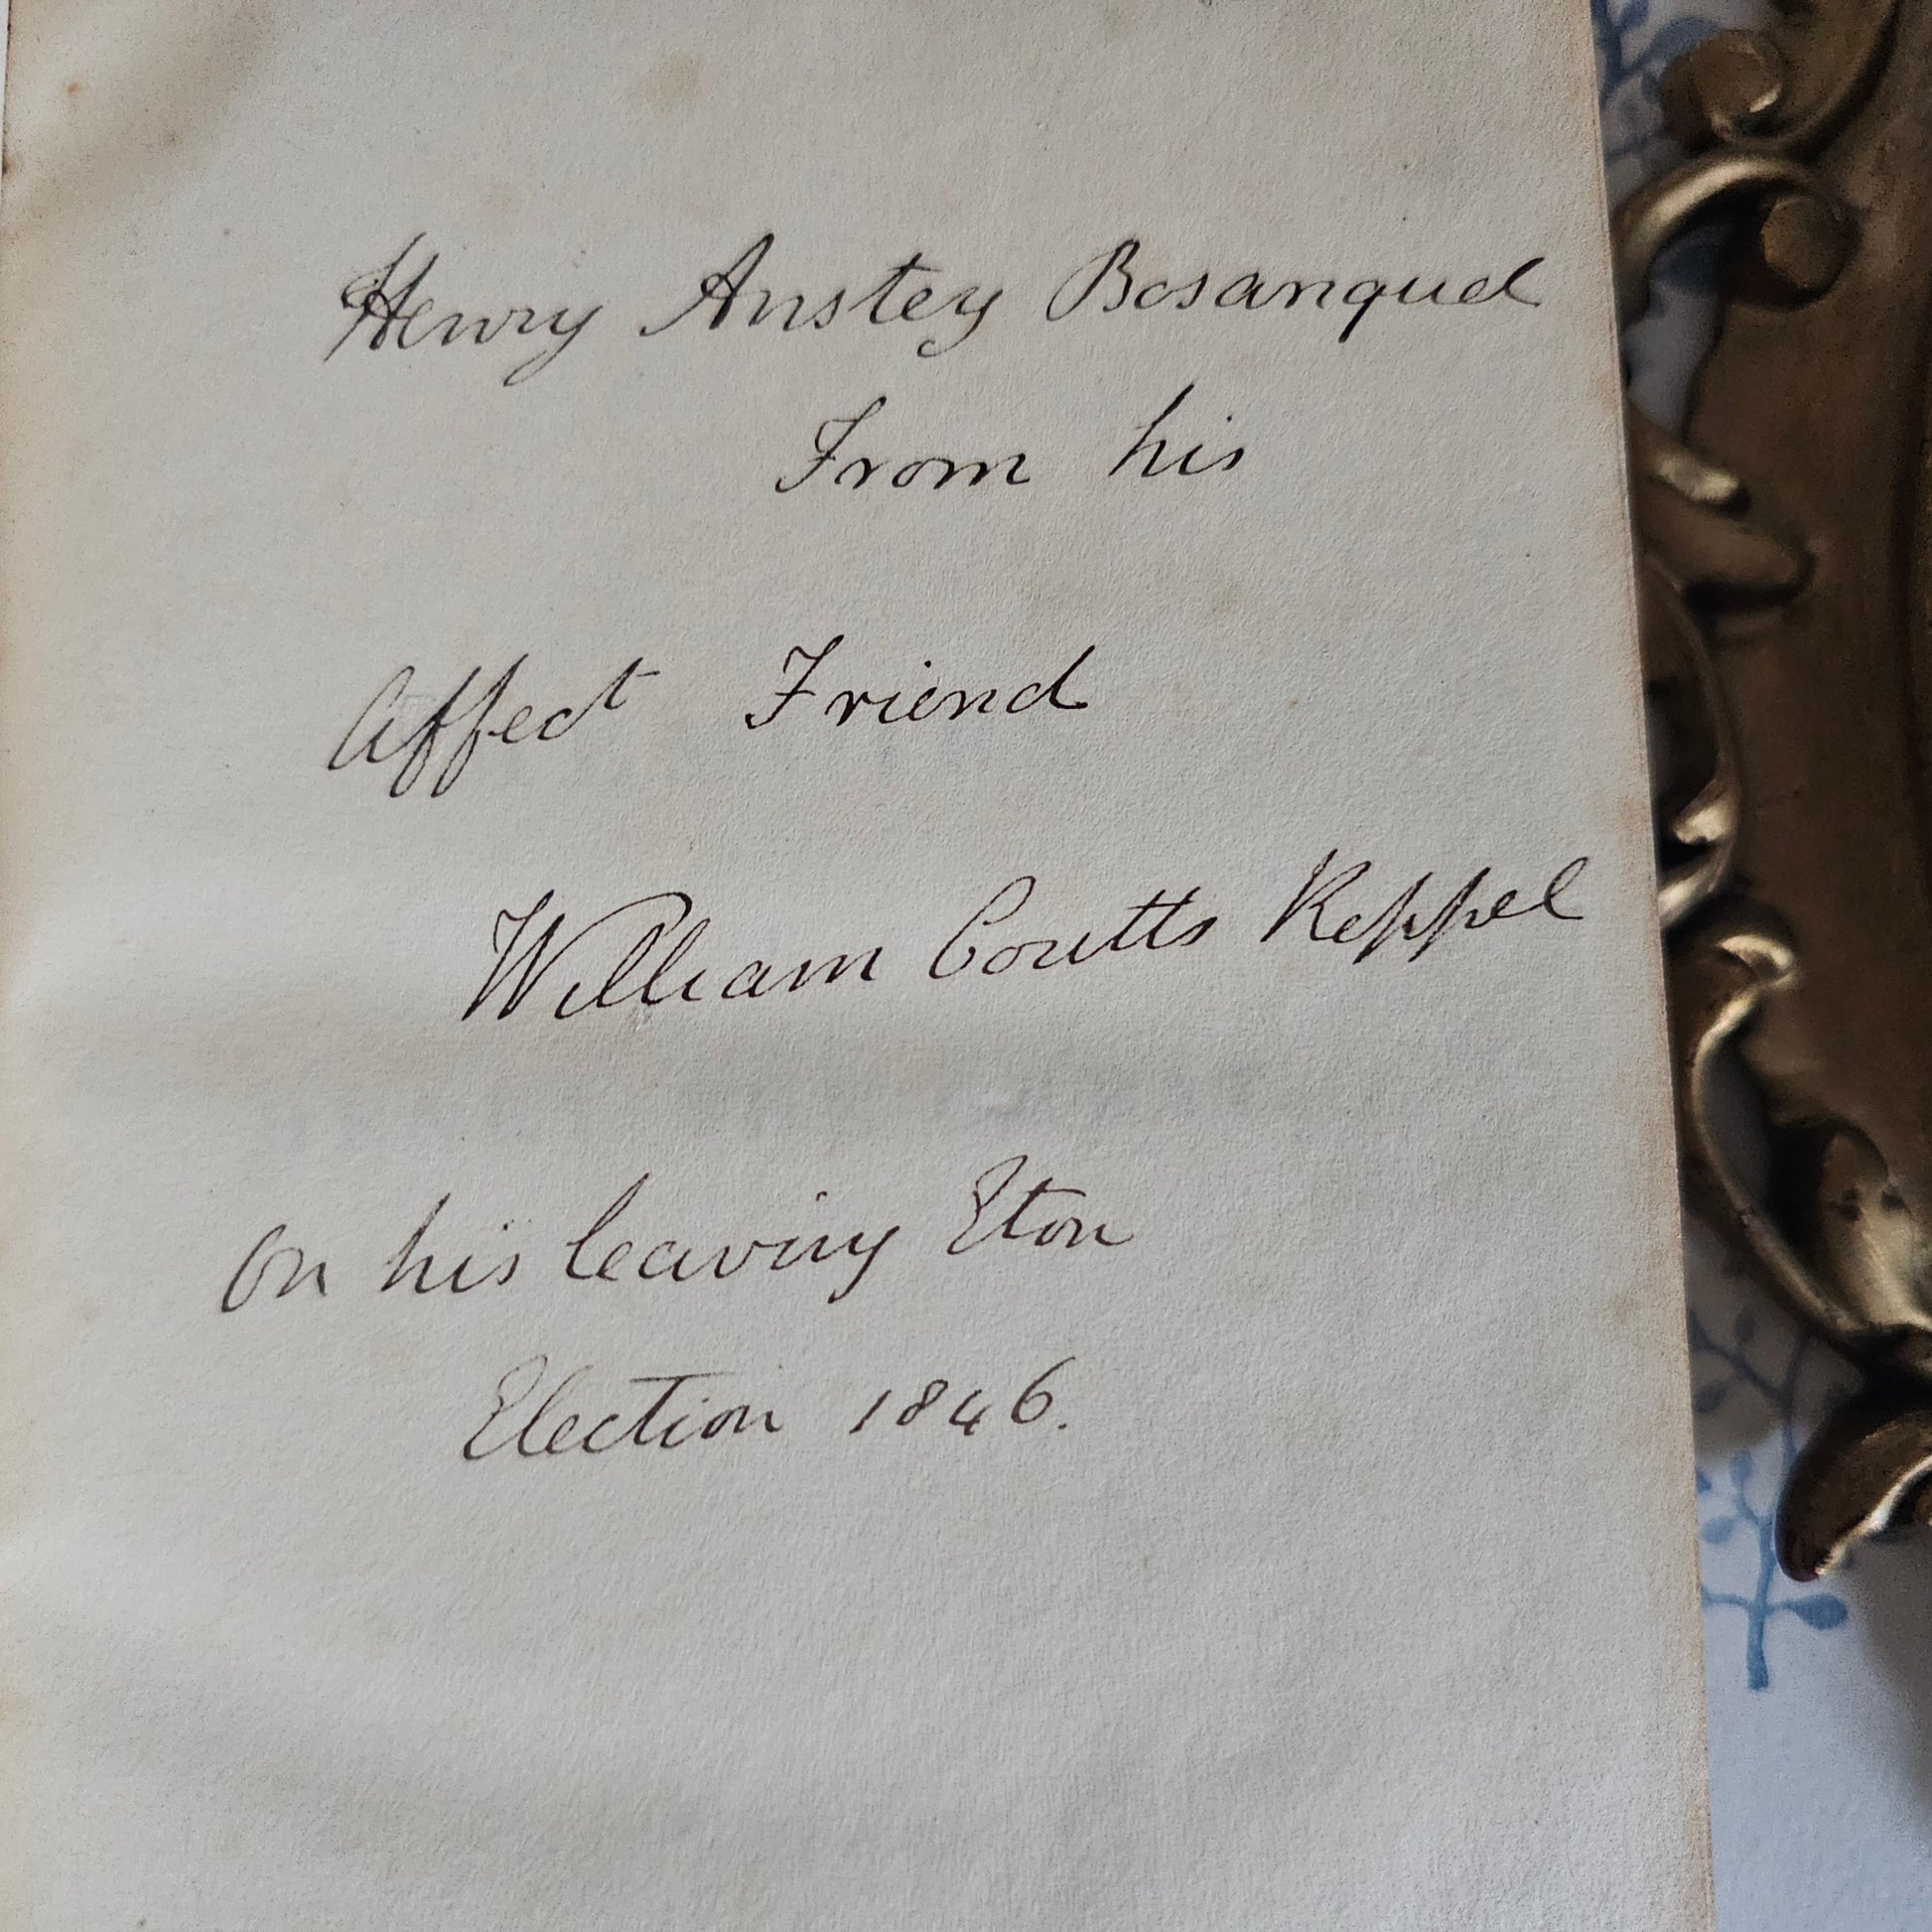 Henry Anstey Bosanquet
From his
Affect Friend
William Coutts Keppel
On his leaving Eton
Election 1846.